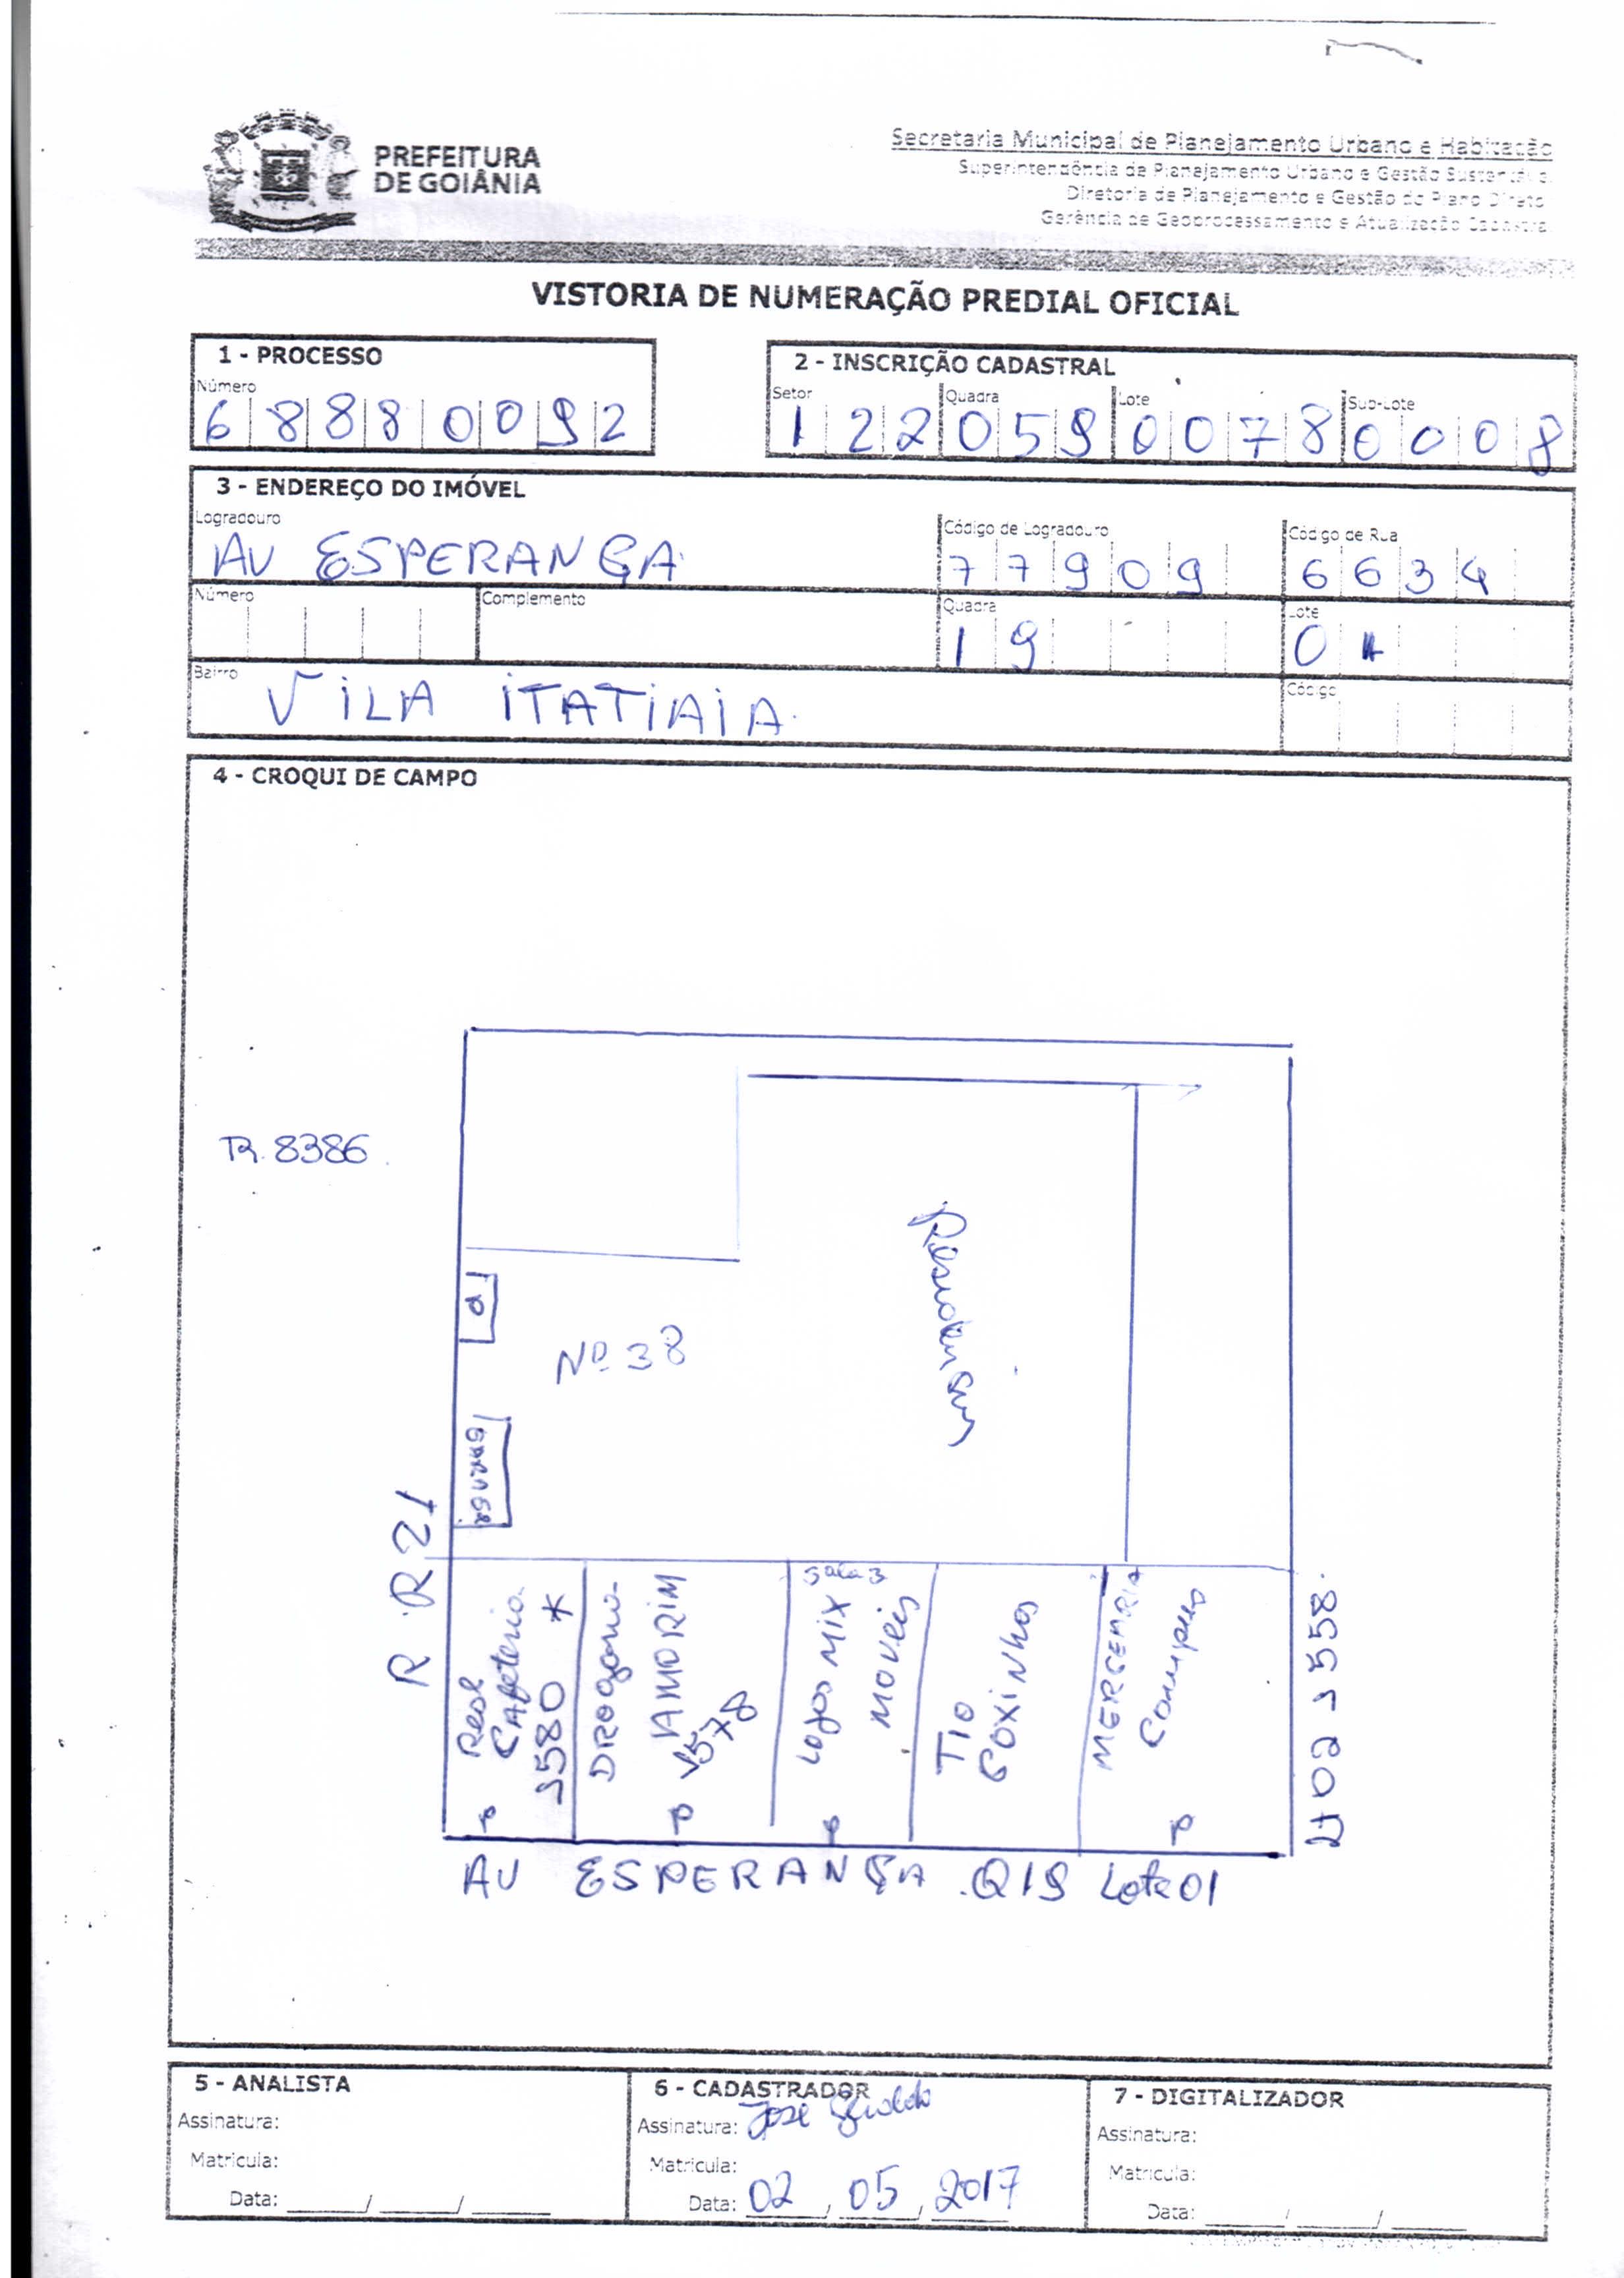 PREFEITURA
DE GOIÂNIA
Secretaria Municipal de Planejamento Urbano e Habitação
Superintendência de Planejamento Urbano e Gestão Sustentável
Diretoria de Planejamento e Gestão do Plano Diretor
Gerência de Geoprocessamento e Atualização Cadastral
VISTORIA DE NUMERAÇÃO PREDIAL OFICIAL
1 - PROCESSO
Número
68880092
2 - INSCRIÇÃO CADASTRAL
Setor Quadra Lote Sub-Lote
122 059 0078 0008
3 - ENDEREÇO DO IMÓVEL
Logradouro Código de Logradouro Código de Rua
AV ESPERANÇA 77909 6634
Número Complemento Quadra Lote
19 01
Bairro Código
VILA ITATIAIA
4 - CROQUI DE CAMPO
R. 8386
Nº 38
R R21
Real
Cafeteria
1580 *
DROgaria
AMORIM
1578
Sala 3
Lojas MIX
MOVEIS
TIO
COXINHAS
MERCEARIA
P P P P
AV ESPERANÇA Q19 Lote 01
402 1558
5 - ANALISTA
Assinatura:
Matricula:
Data: ____/____/____
6 - CADASTRADOR
Assinatura: José
Matricula:
Data: 02, 05, 2017
7 - DIGITALIZADOR
Assinatura:
Matricula:
Data: ____/____/____